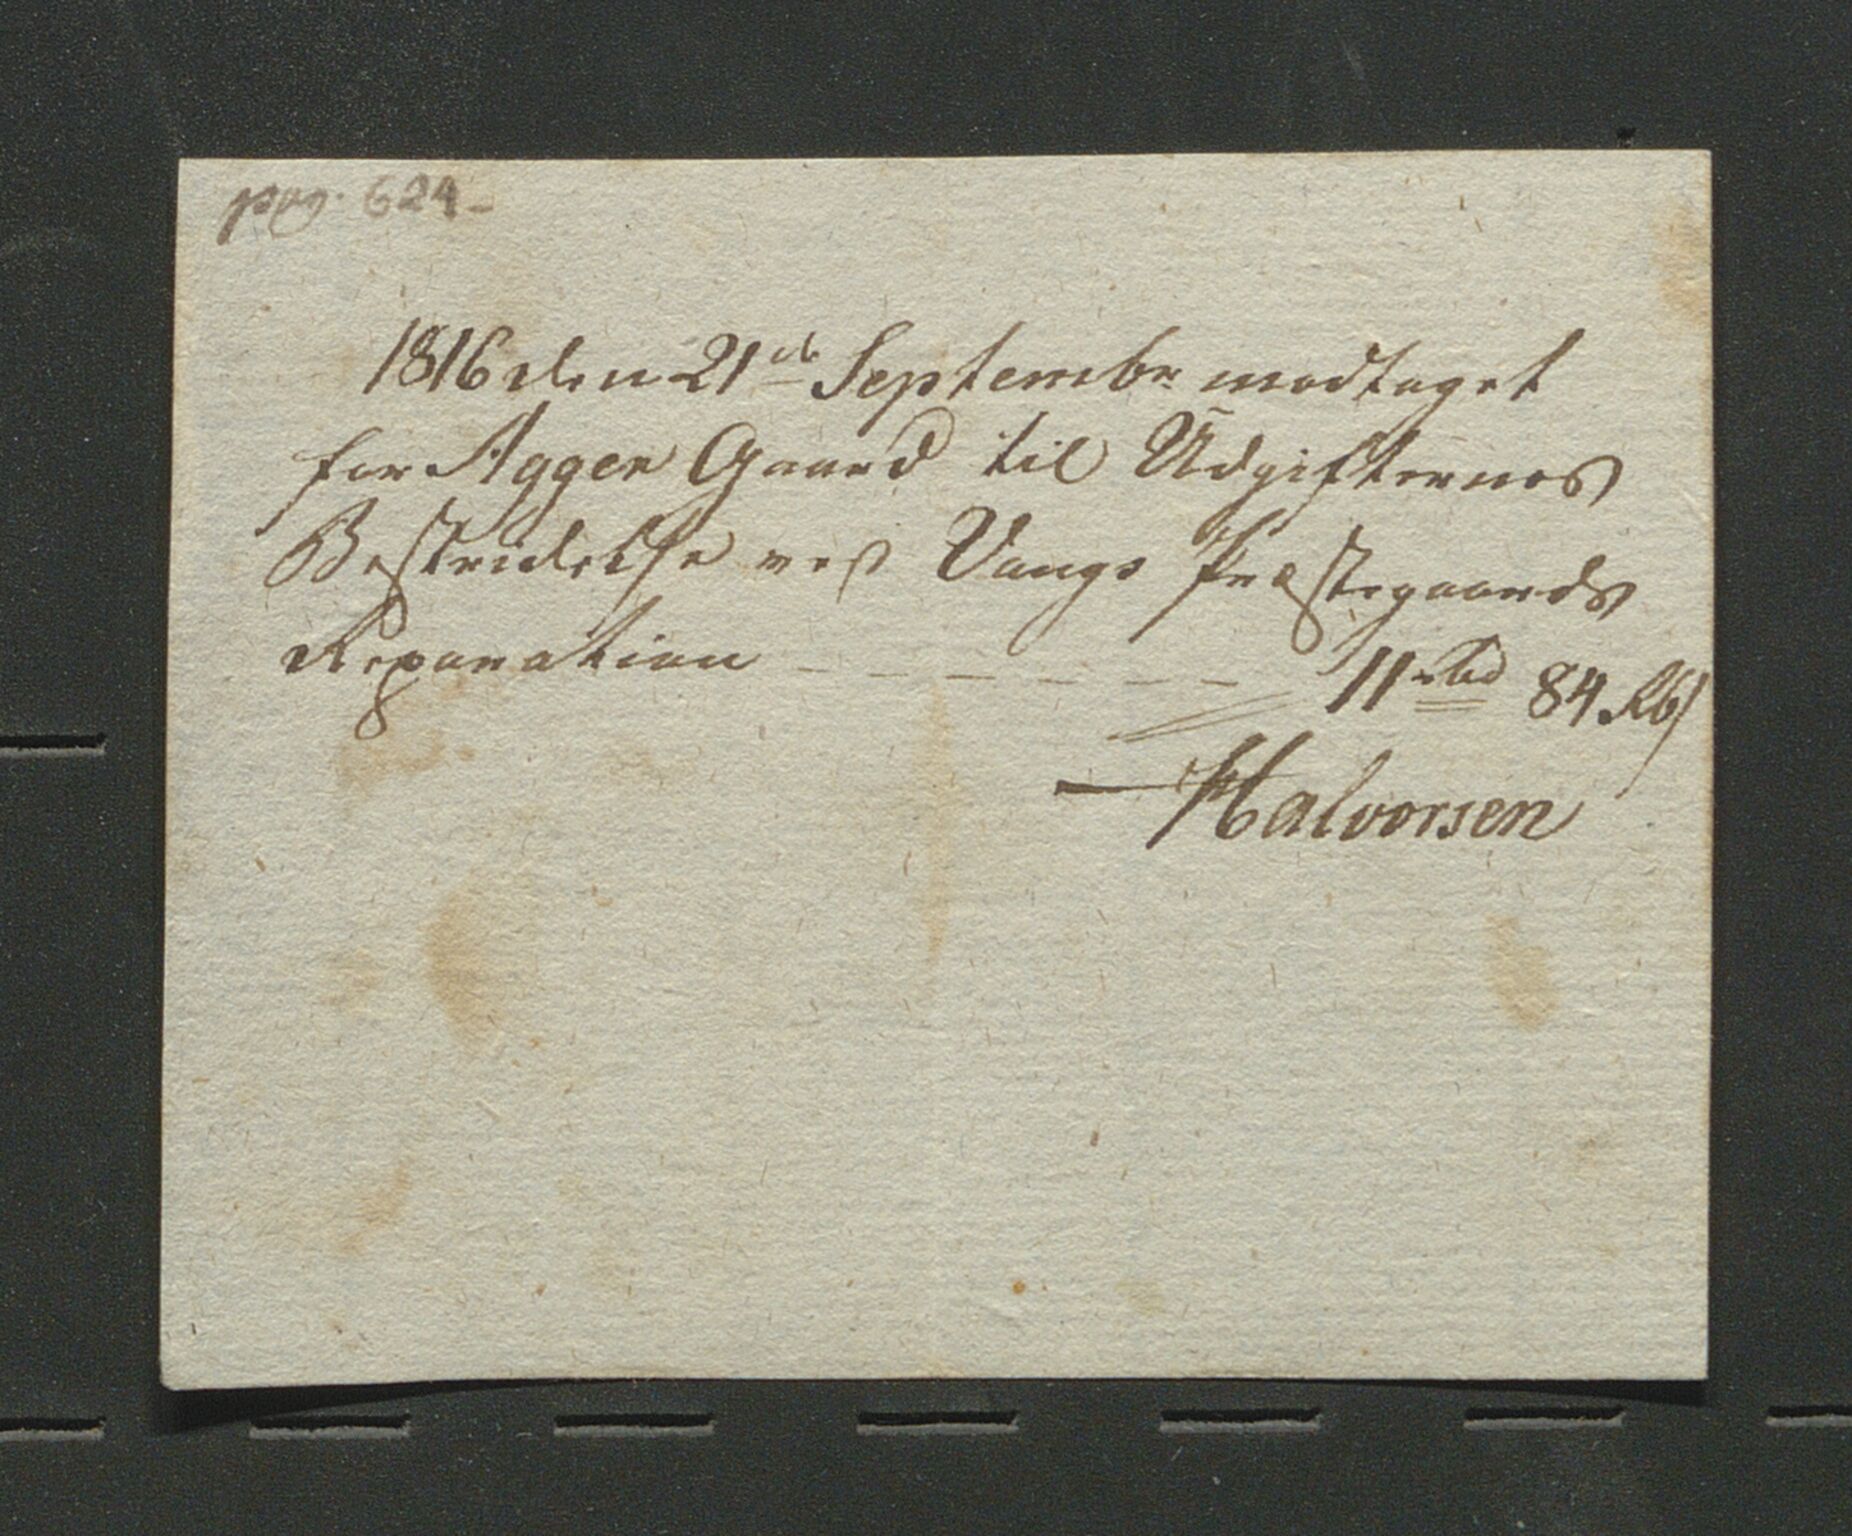 pag. 624-
1816 den 21de Septembr modtaget
for Agger Gaard til Udgifternes
Bestridelse ved Vangs Præstegaards
Reparation - - - - - - 11 rbd 84 Rbs
Halvorsen